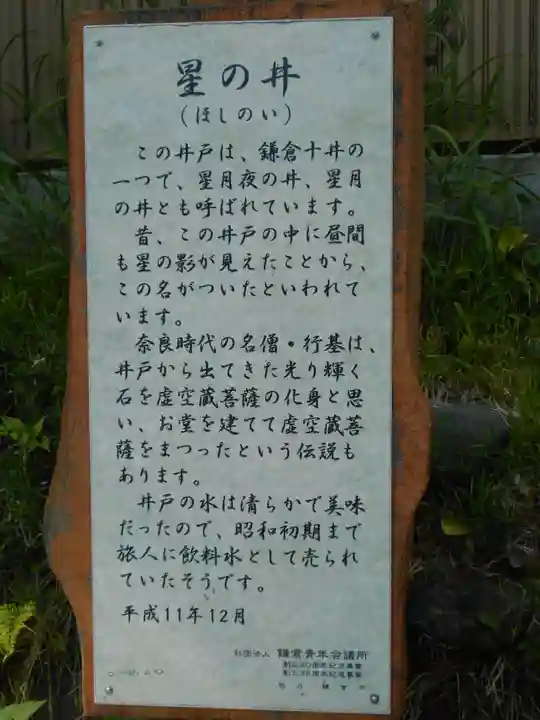 星の井
（ほしのい）
この井戸は、鎌倉十井の
一つで、星月夜の井、星月
の井とも呼ばれています。
昔、この井戸の中に昼間
も星の影が見えたことから、
この名がついたといわれて
います。
奈良時代の名僧・行基は、
井戸から出てきた光り輝く
石を虚空蔵菩薩の化身と思
い、お堂を建てて虚空蔵菩
薩をまつったという伝説も
あります。
井戸の水は清らかで美味
だったので、昭和初期まで
旅人に飲料水として売られ
ていたそうです。
平成11年12月
社団法人 鎌倉青年会議所